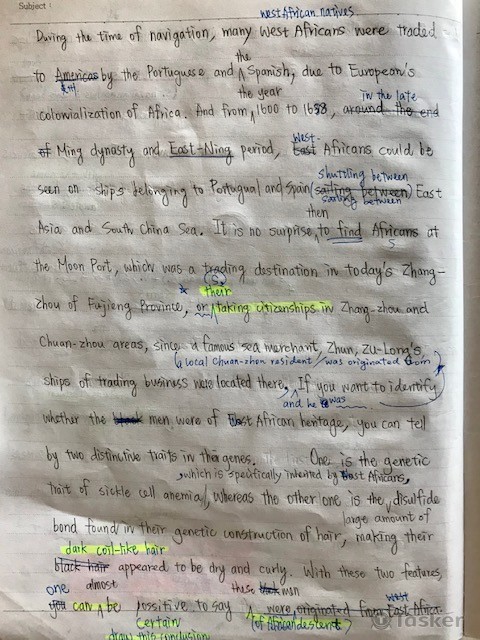 Subject :
West African natives
During the time of navigation, many West Africans were traded
the
to Americas by the Portuguese and Spanish, due to European's
the year in the late
colonialization of Africa. And from 1600 to 1658, around the end
West-
of Ming dynasty and East-Ning period, East Africans could be
shuttling between
seen on ships belonging to Portugual and Spain (sailing between) East
sailing between
then
Asia and South China Sea. It is no surprise, to find Africans at
the Moon Port, which was a trading destination in today's Zhang-
their
zhou of Fujieng Province, or taking citizenships in Zhang-zhou and
Chuan-zhou areas, since a famous sea merchant, Zhun, Zu-Long's
(a local Chuan-zhou resident / was originated from
ships of trading business were located there, If you want to identify
and he was
whether the black men were of East African heritage, you can tell
by two distinctive traits in their genes. One is the genetic
, which is specifically inherited by East Africans,
trait of sickle cell anemia, whereas the other one is the disulfide
large amount of
bond found in their genetic construction of hair, making their
dark coil-like hair
black hair appeared to be dry and curly. With these two features,
one almost these black man West
you can be possitive to say were originated from East Africa.
certain (of African descent)
draw this conclusion
Tasker